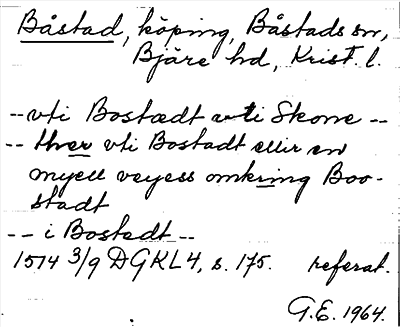 Båstad, köping, Båstads sn,
Bjäre hd, Krist. l.
-- vti Bostædt vti Skone --
-- thver vti Bostadt ellir en
myell veyess omkring Boo-
stadt
-- i Bostedt --
1514 3/9 DGKL4, s. 175. referat.
G.E. 1964.